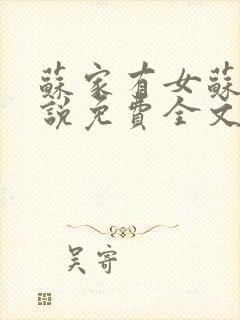 蘇家有女蘇
說免費全文
吴寄